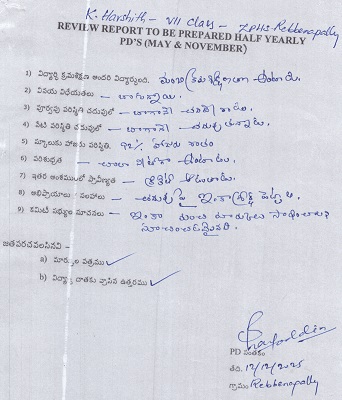 K. Harshith - VII class - ZPHS Rebbenapally
REVILW REPORT TO BE PREPARED HALF YEARLY
PD'S (MAY & NOVEMBER)
1) విద్యార్థి క్రమశిక్షణ అందరి విద్యార్థులది. మంచి క్రమశిక్షణ గా ఉంటాడు.
2) వినయ విధేయతలు - బాగున్నాయి.
3) పూర్వపు పరిస్థితి చదువులో - బాగానే చదివే వాడు.
4) నేటి పరిస్థితి చదువులో - బాగానే చదువు తున్నాడు.
5) స్కూలుకు హాజరు పరిస్థితి. 92% హాజరు శాతం
6) పరిశుభ్రత - చాలా నీట్ గా ఉంటాడు.
7) ఇతర అంశములలో ప్రావీణ్యత - క్రికెట్ ఆడుతాడు.
8) అభిప్రాయాలు సలహాలు - చదువు పై ఇంకా శ్రద్ధ పెట్టాలి.
9) కమిటీ సభ్యుల సూచనలు - ఇంకా మంచి మార్కులు సాధించాలని
సూచించడమైనది.
జతపరచవలసినవి -
a) మార్కుల పత్రము ✓
b) విద్యార్థి దాతకు వ్రాసిన ఉత్తరము ✓
PD సంతకం
తేది. 12/12/2025
గ్రామం Rebbenapally